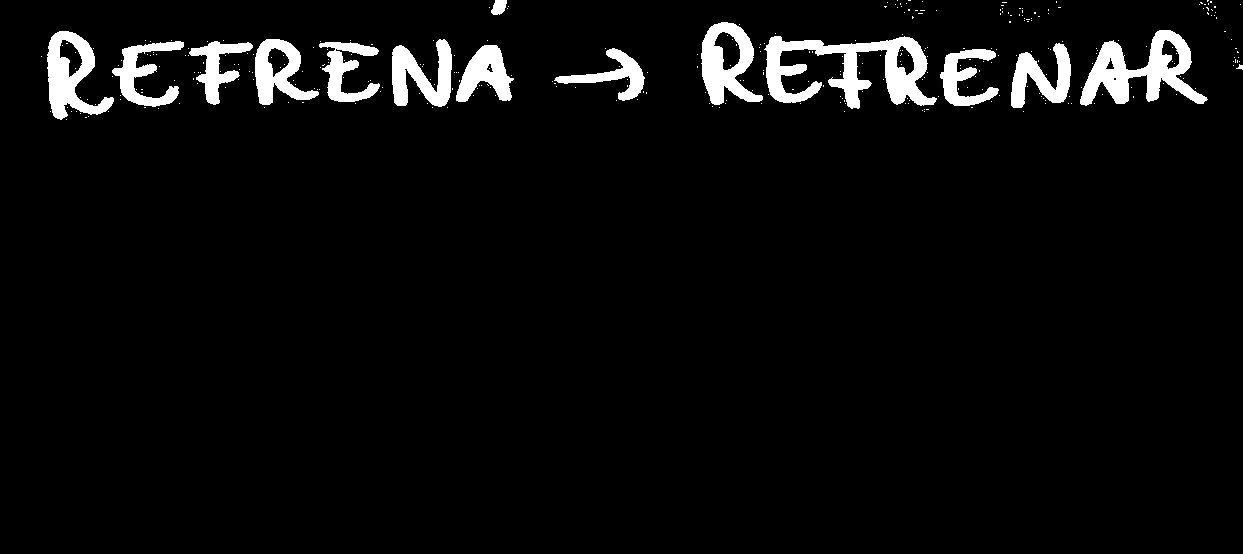 REFRENA → REFRENAR